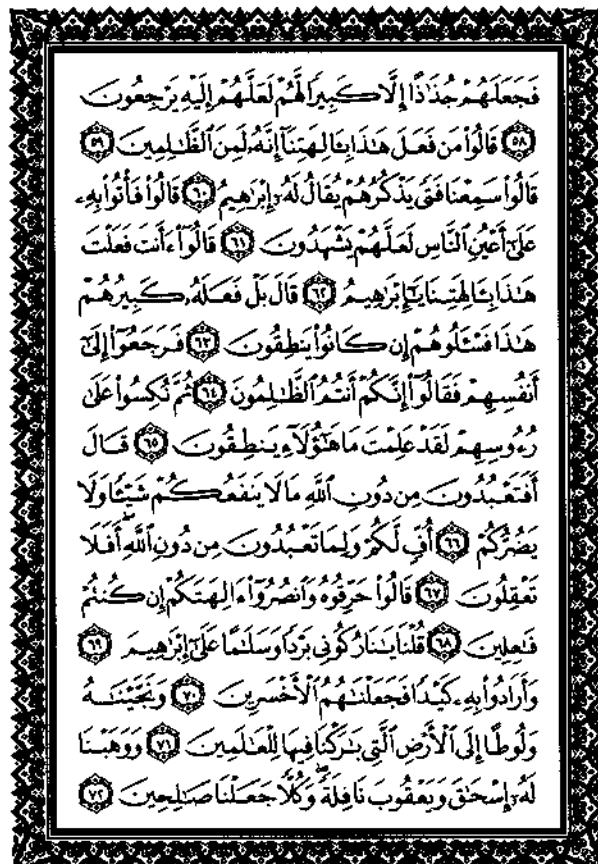 فَجَعَلَهُمْ جُذَٰذًا إِلَّا كَبِيرًا لَّهُمْ لَعَلَّهُمْ إِلَيْهِ يَرْجِعُونَ
﴿٥٨﴾ قَالُوا۟ مَن فَعَلَ هَٰذَا بِـَٔالِهَتِنَآ إِنَّهُۥ لَمِنَ ٱلظَّٰلِمِينَ ﴿٥٩﴾
قَالُوا۟ سَمِعْنَا فَتًى يَذْكُرُهُمْ يُقَالُ لَهُۥٓ إِبْرَٰهِيمُ ﴿٦٠﴾ قَالُوا۟ فَأْتُوا۟ بِهِۦ
عَلَىٰٓ أَعْيُنِ ٱلنَّاسِ لَعَلَّهُمْ يَشْهَدُونَ ﴿٦١﴾ قَالُوٓا۟ ءَأَنتَ فَعَلْتَ
هَٰذَا بِـَٔالِهَتِنَا يَٰٓإِبْرَٰهِيمُ ﴿٦٢﴾ قَالَ بَلْ فَعَلَهُۥ كَبِيرُهُمْ
هَٰذَا فَسْـَٔلُوهُمْ إِن كَانُوا۟ يَنطِقُونَ ﴿٦٣﴾ فَرَجَعُوٓا۟ إِلَىٰٓ
أَنفُسِهِمْ فَقَالُوٓا۟ إِنَّكُمْ أَنتُمُ ٱلظَّٰلِمُونَ ﴿٦٤﴾ ثُمَّ نُكِسُوا۟ عَلَىٰ
رُءُوسِهِمْ لَقَدْ عَلِمْتَ مَا هَٰٓؤُلَآءِ يَنطِقُونَ ﴿٦٥﴾ قَالَ
أَفَتَعْبُدُونَ مِن دُونِ ٱللَّهِ مَا لَا يَنفَعُكُمْ شَيْـًٔا وَلَا
يَضُرُّكُمْ ﴿٦٦﴾ أُفٍّ لَّكُمْ وَلِمَا تَعْبُدُونَ مِن دُونِ ٱللَّهِ ۖ أَفَلَا
تَعْقِلُونَ ﴿٦٧﴾ قَالُوا۟ حَرِّقُوهُ وَٱنصُرُوٓا۟ ءَالِهَتَكُمْ إِن كُنتُمْ
فَٰعِلِينَ ﴿٦٨﴾ قُلْنَا يَٰنَارُ كُونِى بَرْدًا وَسَلَٰمًا عَلَىٰٓ إِبْرَٰهِيمَ ﴿٦٩﴾
وَأَرَادُوا۟ بِهِۦ كَيْدًا فَجَعَلْنَٰهُمُ ٱلْأَخْسَرِينَ ﴿٧٠﴾ وَنَجَّيْنَٰهُ
وَلُوطًا إِلَى ٱلْأَرْضِ ٱلَّتِى بَٰرَكْنَا فِيهَا لِلْعَٰلَمِينَ ﴿٧١﴾ وَوَهَبْنَا
لَهُۥٓ إِسْحَٰقَ وَيَعْقُوبَ نَافِلَةً ۖ وَكُلًّا جَعَلْنَا صَٰلِحِينَ ﴿٧٢﴾